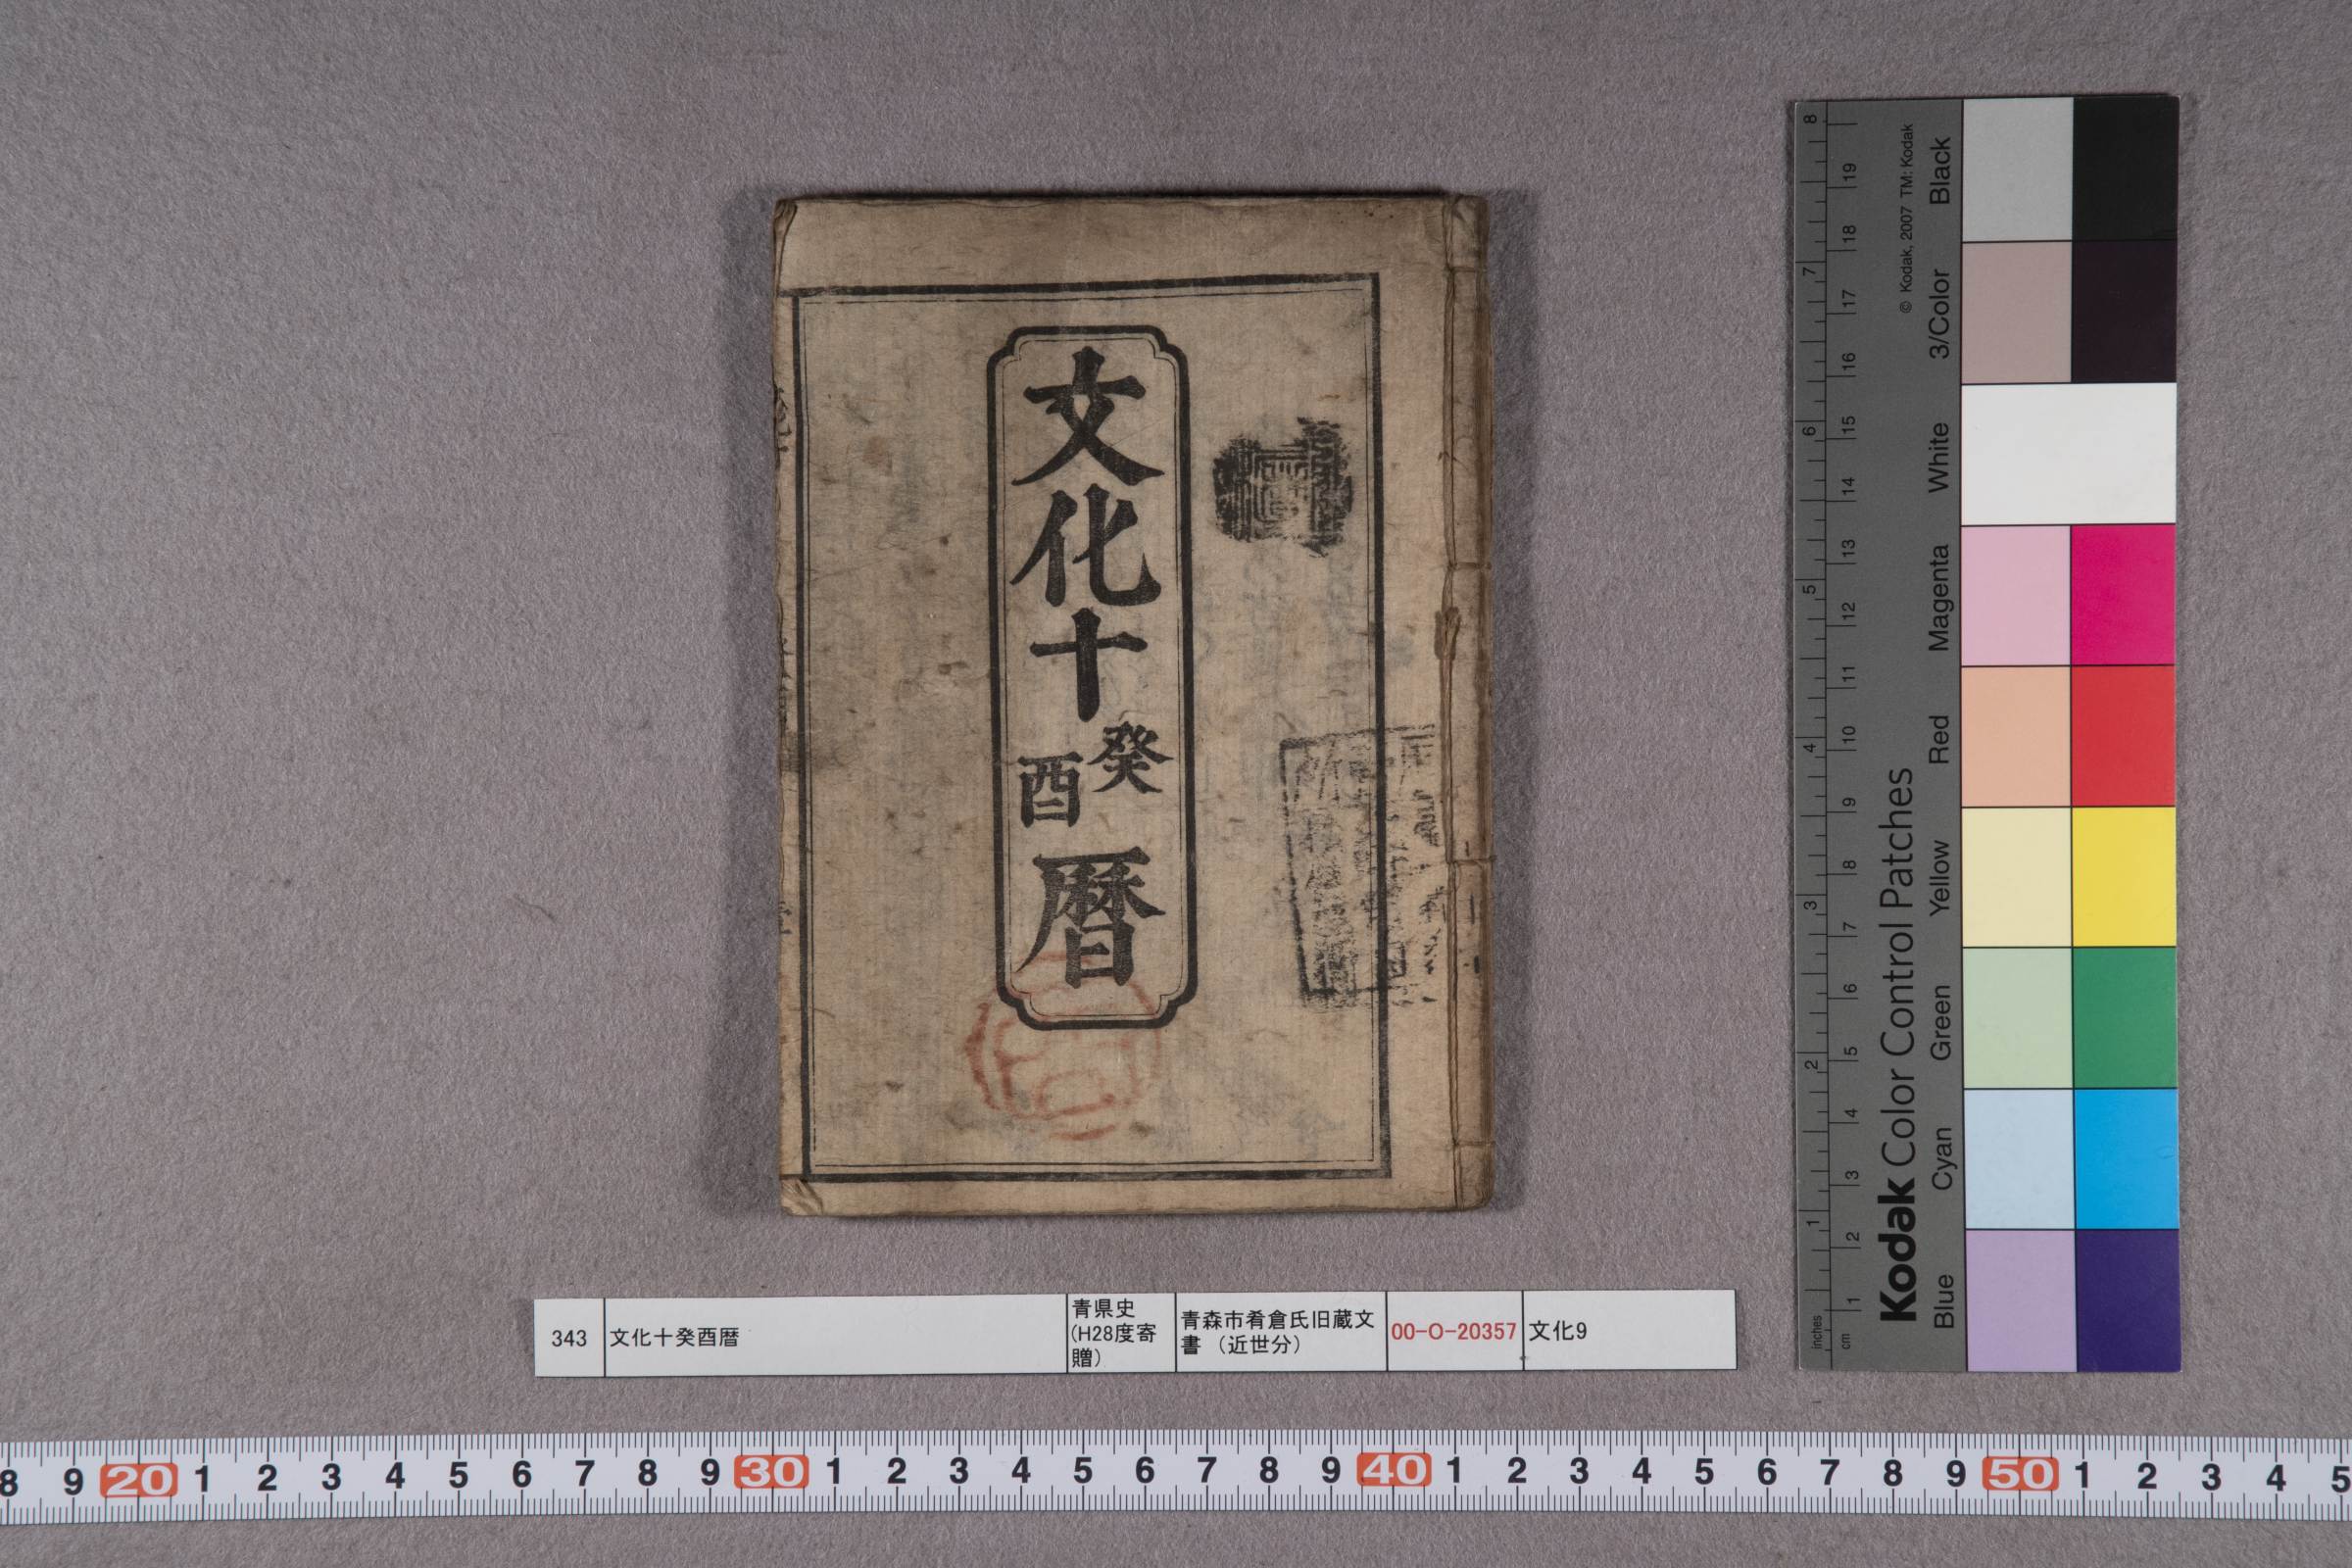 文化十癸酉暦
343
文化十癸酉暦
青県史
(H28度寄
贈)
青森市肴倉氏旧蔵文
書（近世分）
00-O-20357
文化9
8 9 20 1 2 3 4 5 6 7 8 9 30 1 2 3 4 5 6 7 8 9 40 1 2 3 4 5 6 7 8 9 50 1 2 3 4 5
Kodak Color Control Patches
© Kodak, 2007 TM: Kodak
Blue Cyan Green Yellow Red Magenta White 3/Color Black
inches 1 2 3 4 5 6 7 8
cm 1 2 3 4 5 6 7 8 9 10 11 12 13 14 15 16 17 18 19